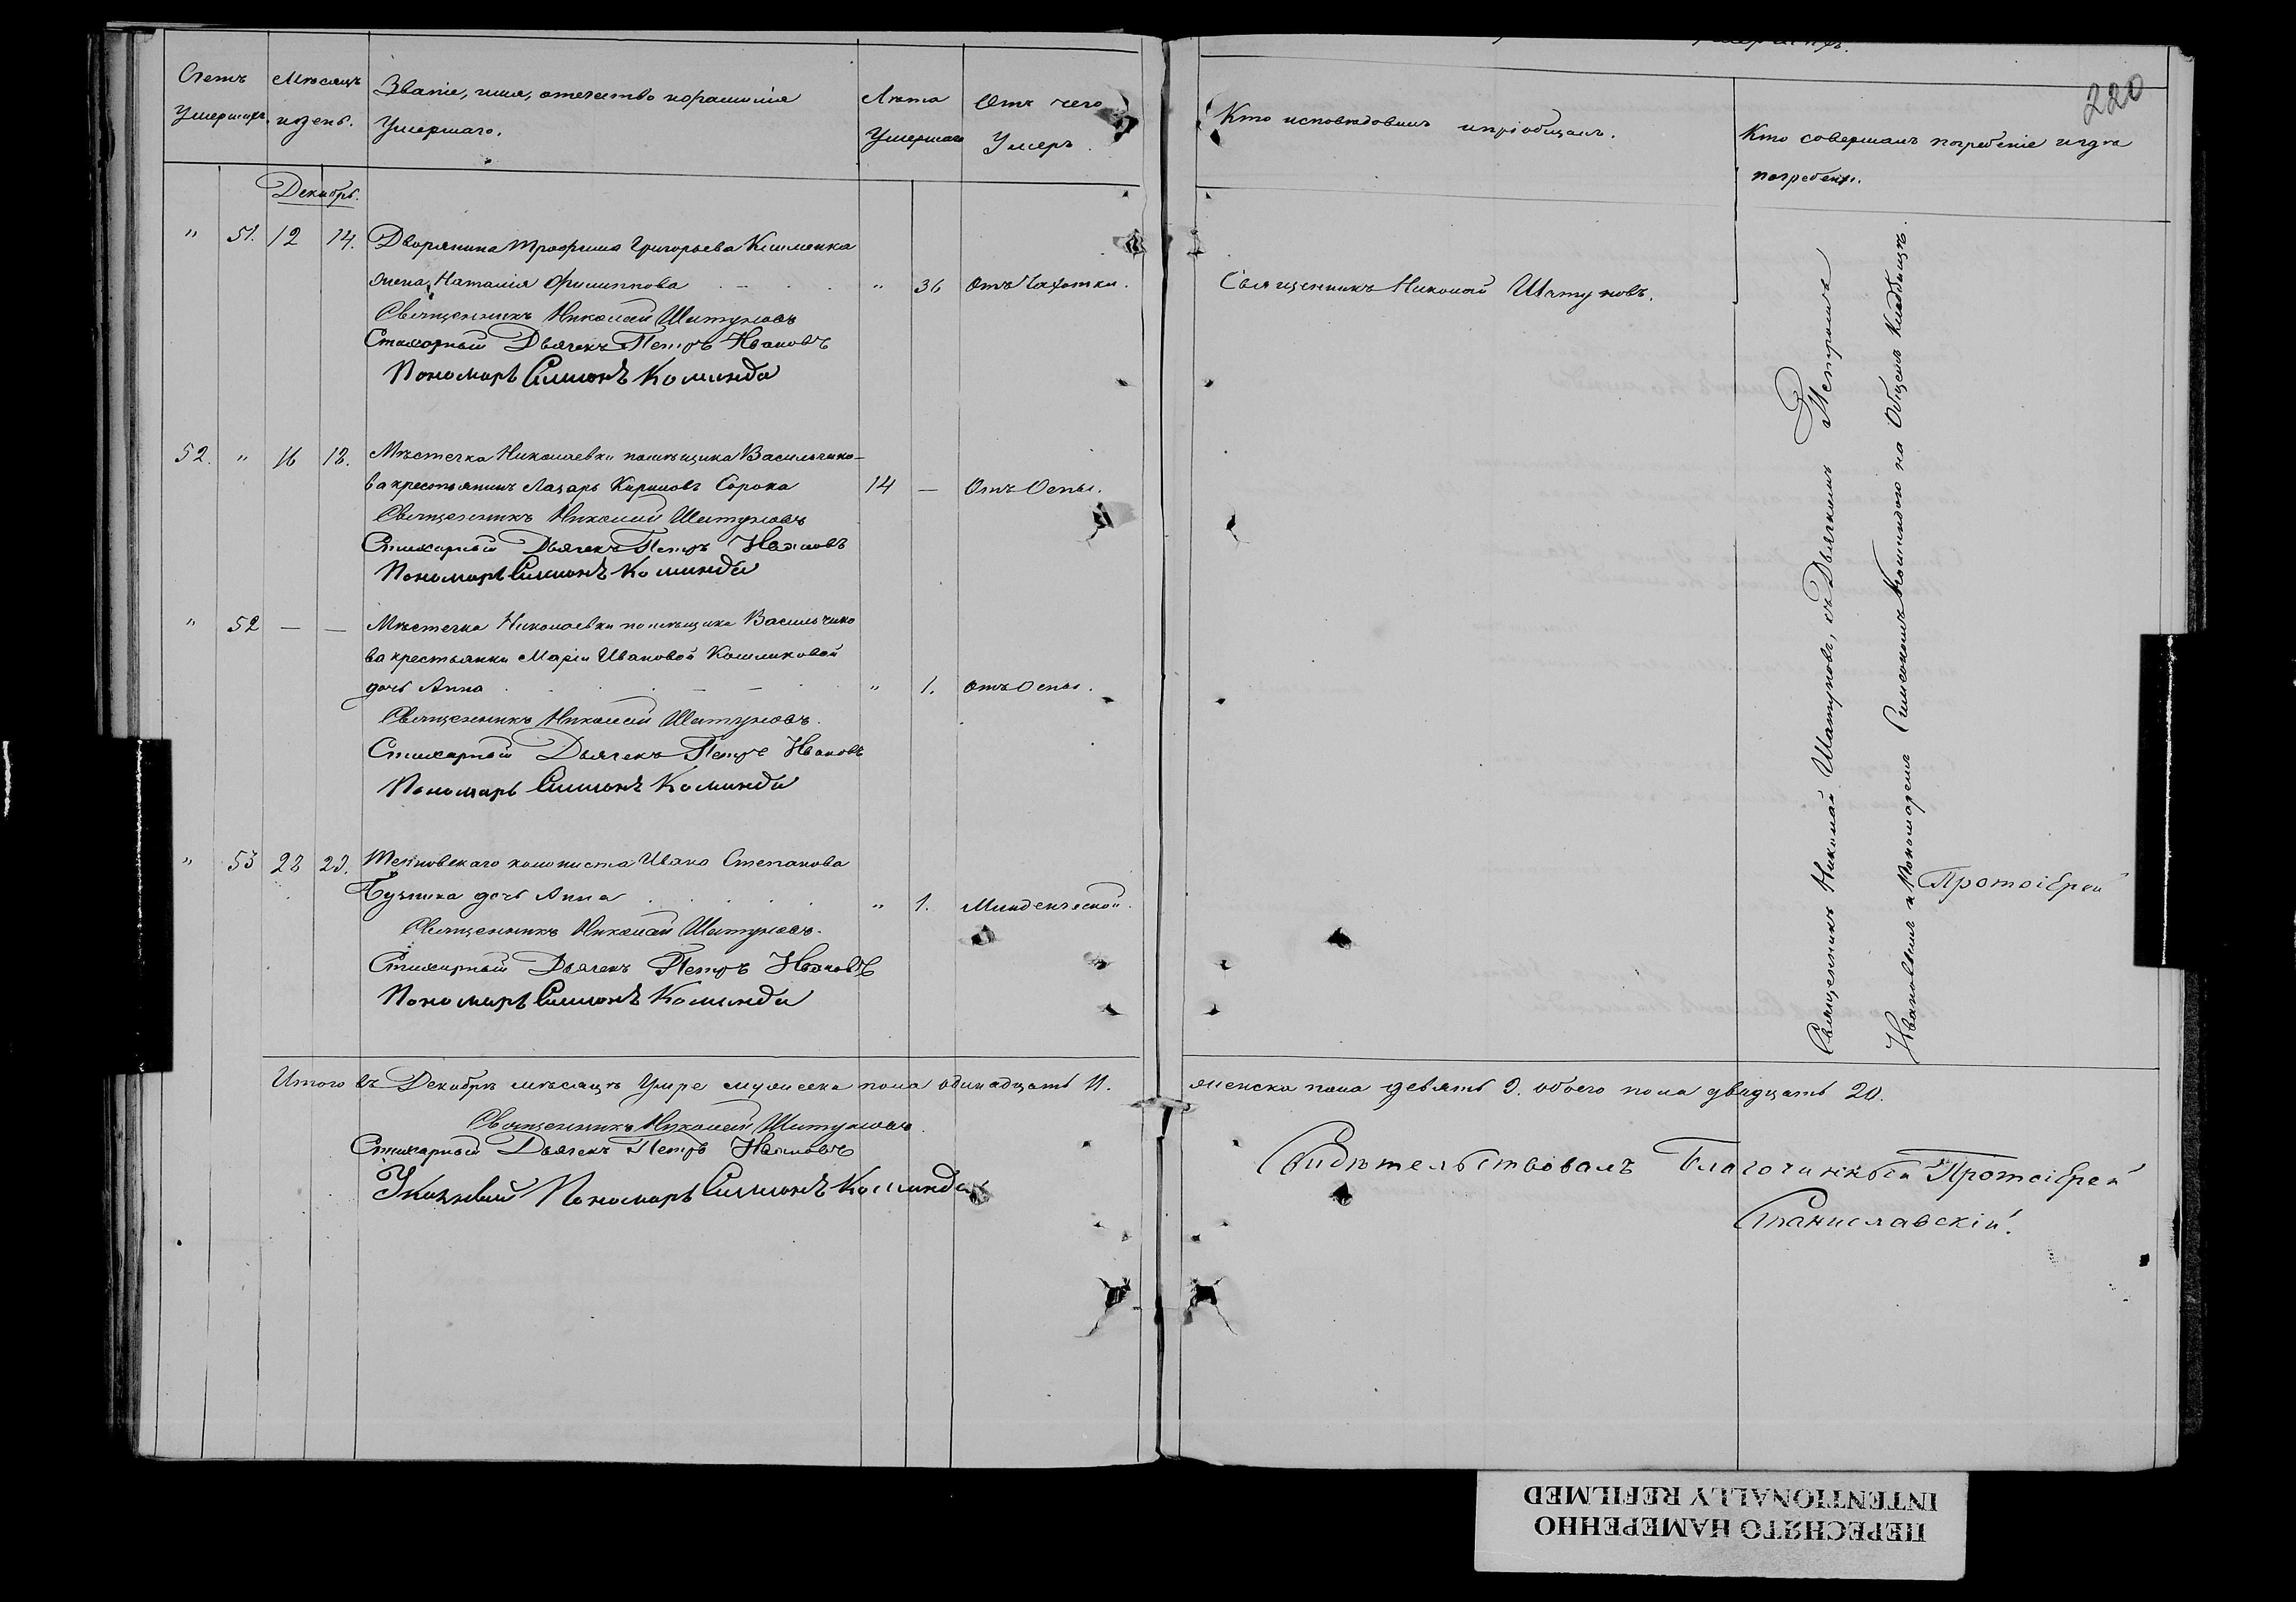 Счетъ Умершихъ.
Мѣсяцъ и день.
Званіе, имя, отечество и фамилія Умершаго.
Лѣта Умершаго
Отъ чего Умеръ.
Кто исповѣдовалъ и пріобщалъ.
Кто совершалъ погребеніе и гдѣ погребены.
220
Декабрь.
" 51. 12 14. Дворянина Трофима Григорьева Клименка
жена, Наталія Филиппова " 36 Отъ Чахотки. Священникъ Николай Шатуновъ.
Священникъ Николай Шатуновъ
Стихарный Дьячекъ Петръ Ивановъ
Пономарь Симионъ Коминда
52. " 16 18. Мѣстечка Николаевки помѣщика Васильчико-
ва крестьянинъ Лазарь Кириловъ Сорока 14 — Отъ Оспы.
Священникъ Николай Шатуновъ
Стихарный Дьячекъ Петръ Ивановъ
Пономарь Симионъ Коминда
" 52 — — Мѣстечка Николаевки помѣщика Васильчико
ва крестьянки Маріи Ивановой
дочь Анна " 1. отъ Оспы.
Священникъ Николай Шатуновъ.
Стихарный Дьячекъ Петръ Ивановъ
Пономарь Симионъ Коминда
" 53 28 29. колониста Ивана Степанова
дочь Анна " 1. Младенческой.
Священникъ Николай Шатуновъ.
Стихарный Дьячекъ Петръ Ивановъ
Пономарь Симионъ Коминда
Священникъ Николай Шатуновъ, съ Дьячкомъ Петромъ
Ивановымъ и Пономаремъ Симиономъ Коминдою на Общемъ Кладбищѣ.
Протоіерей
Итого въ Декабрѣ мѣсяцѣ Умре мужеска пола одинадцать 11. женска пола девять 9. обоего пола двадцать 20.
Священникъ Николай Шатуновъ.
Стихарный Дьячекъ Петръ Ивановъ
Указный Пономарь Симионъ Коминда
Свидѣтельствовалъ Благочинный Протоіерей
Станиславскій.
ПЕРЕСНЯТО НАМЕРЕННО
INTENTIONALLY REFILMED